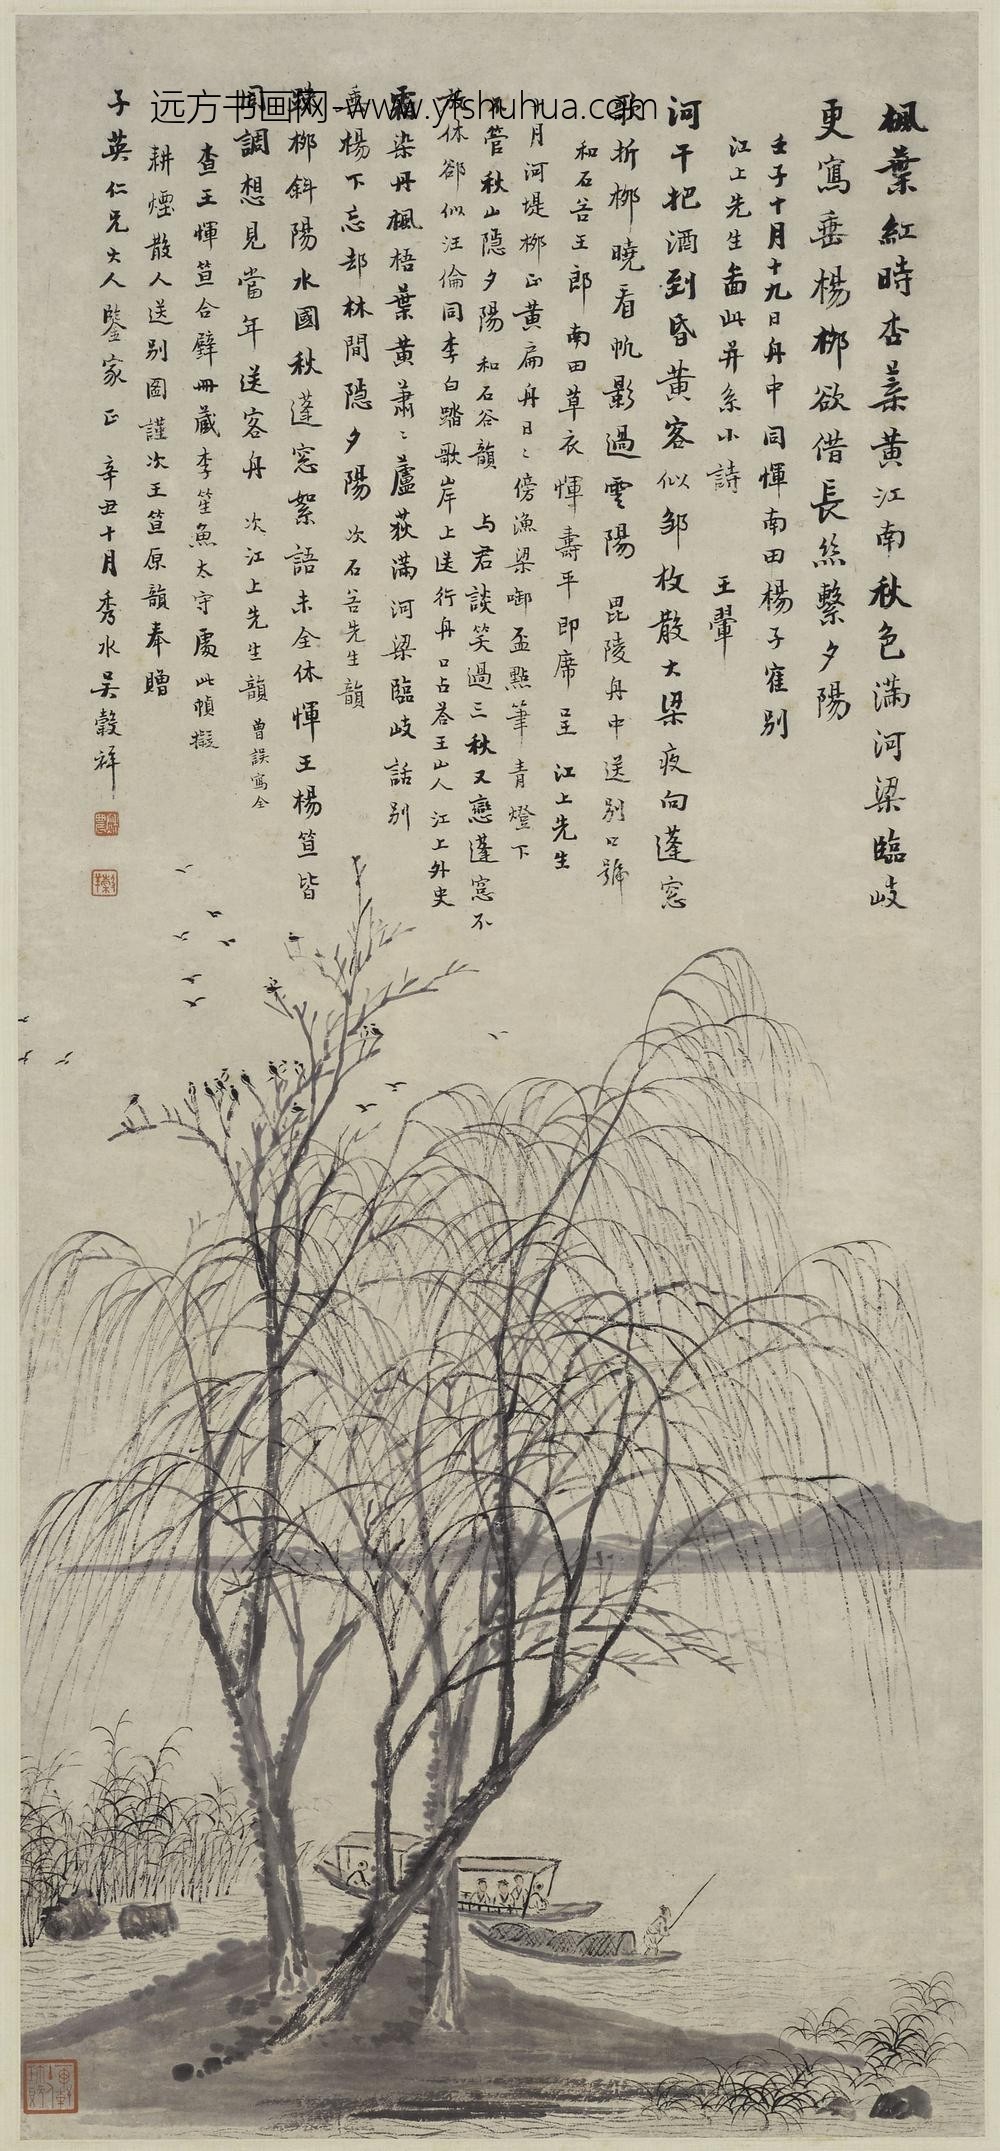 楓葉紅時杏葉黃江南秋色滿河梁臨岐
更寫垂楊柳欲借長絲繫夕陽
壬子十月十九日舟中同惲南田楊子隺別
江上先生畫此并系小詩 王翬
河干把酒到昏黃客似鄒枚散大梁夜向蓬窓
歌折柳曉看帆影過雲陽 毘陵舟中送別口號
和石谷王郎 南田草衣惲壽平即席呈 江上先生
月河堤柳正黃扁舟日〻傍漁梁啣盃點筆青燈下
管秋山隱夕陽 和石谷韻 与君談笑過三秋又戀蓬窓不
休卻似汪倫同李白踏歌岸上送行舟 口占荅王山人 江上外史
霜染丹楓梧葉黃蕭〻蘆荻滿河梁臨岐話別
垂楊下忘却林間隱夕陽 次石谷先生韻
疎柳斜陽水國秋蓬窓絮語未全休惲王楊笪皆
同調想見當年送客舟 次江上先生韻 曾誤寫全
查王惲笪合璧冊藏李笙魚太守處此幀擬
耕煙散人送別圖謹次王笪原韻奉贈
子英仁兄大人鑒家正 辛丑十月秀水吴穀祥
远方书画网-www.yfshuhua.com